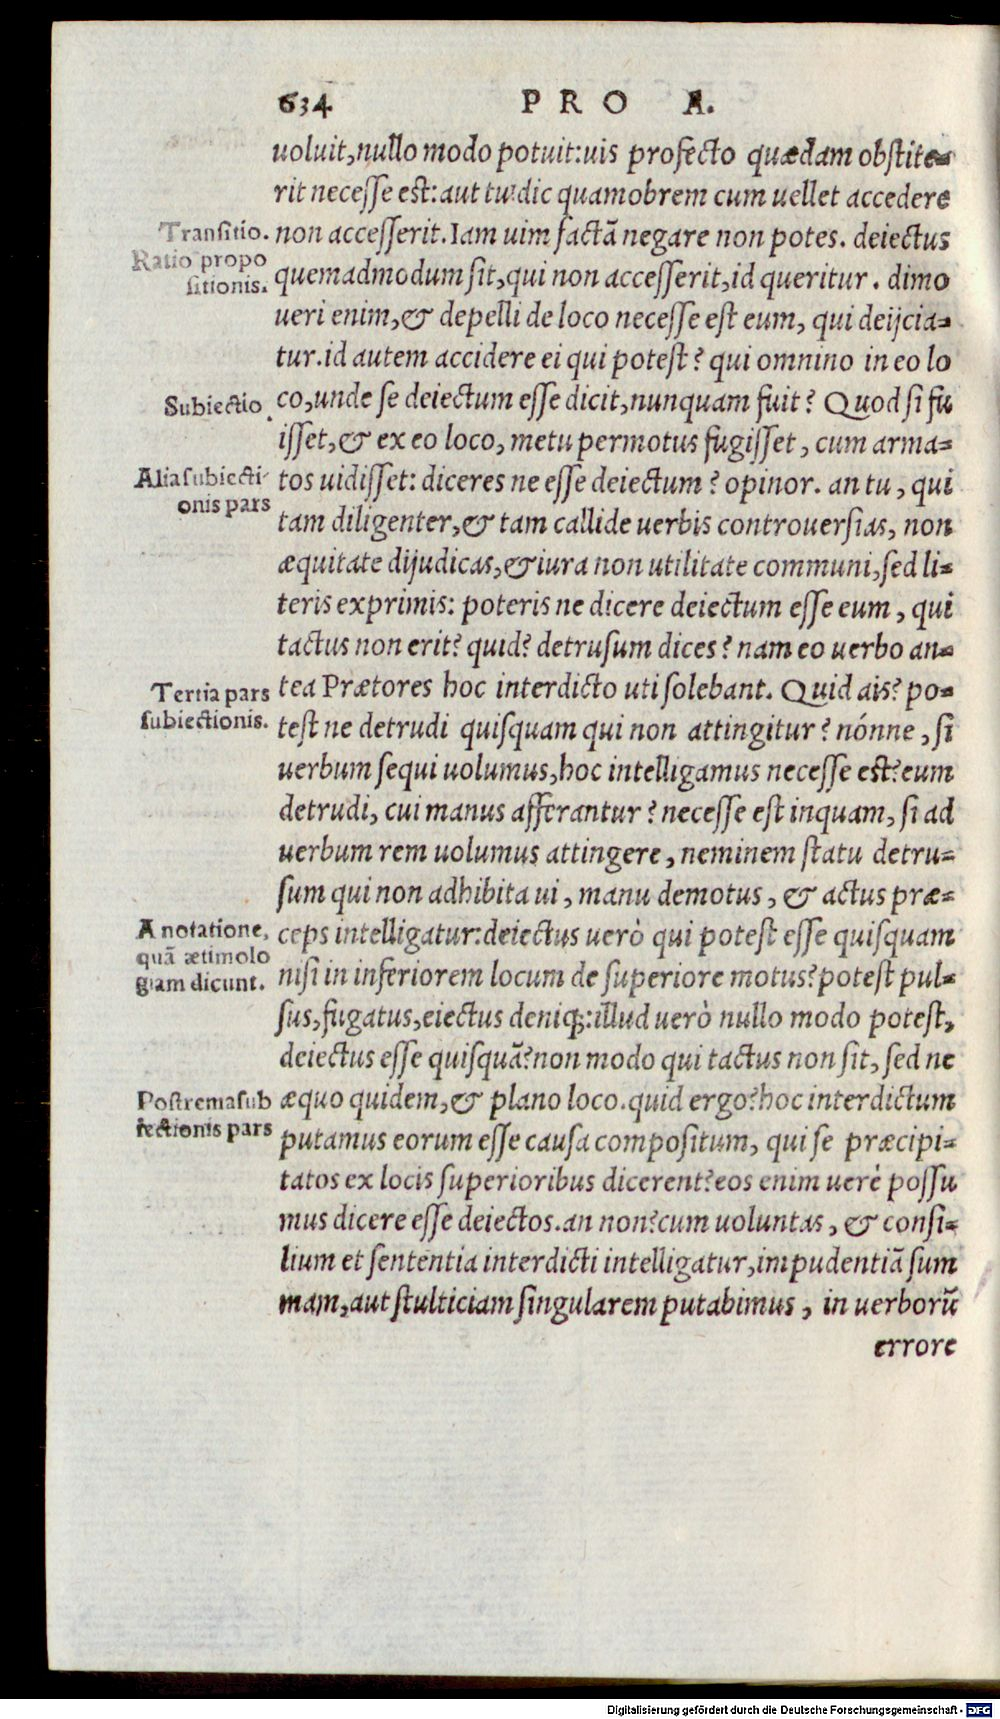 634 PRO A.
uoluit, nullo modo potuit: uis profecto quædam obstite-
rit necesse est: aut tu: dic quamobrem cum uellet accedere
Transitio.
non accesserit. Iam uim factā negare non potes. deiectus
Ratio propo
sitionis.
quemadmodum sit, qui non accesserit, id queritur. dimo
ueri enim, & depelli de loco necesse est eum, qui deijcia-
tur. id autem accidere ei qui potest? qui omnino in eo lo
Subiectio.
co, unde se deiectum esse dicit, nunquam fuit? Quod si fu
isset, & ex eo loco, metu permotus fugisset, cum arma-
Alia subiecti
onis pars
tos uidisset: diceres ne esse deiectum? opinor. an tu, qui
tam diligenter, & tam callide uerbis controuersias, non
æquitate dijudicas, & iura non utilitate communi, sed li-
teris exprimis: poteris ne dicere deiectum esse eum, qui
tactus non erit? quid? detrusum dices? nam eo uerbo an-
Tertia pars
subiectionis.
tea Prætores hoc interdicto uti solebant. Quid ais? po-
test ne detrudi quisquam qui non attingitur? nónne, si
uerbum sequi uolumus, hoc intelligamus necesse est? eum
detrudi, cui manus afferantur? necesse est inquam, si ad
uerbum rem uolumus attingere, neminem statu detru-
sum qui non adhibita ui, manu demotus, & actus præ-
A notatione,
quā ætimolo
giam dicunt.
ceps intelligatur: deiectus uerò qui potest esse quisquam
nisi in inferiorem locum de superiore motus? potest pul-
sus, fugatus, eiectus deniq;: illud uerò nullo modo potest,
deiectus esse quisquā? non modo qui tactus non sit, sed ne
Postrema sub
iectionis pars
æquo quidem, & plano loco. quid ergo? hoc interdictum
putamus eorum esse causa compositum, qui se præcipi-
tatos ex locis superioribus dicerent? eos enim uerè possu
mus dicere esse deiectos. an non? cum uoluntas, & consi-
lium et sententia interdicti intelligatur, impudentiā sum
mam, aut stulticiam singularem putabimus, in uerborū
errore
Digitalisierung gefördert durch die Deutsche Forschungsgemeinschaft - DFG